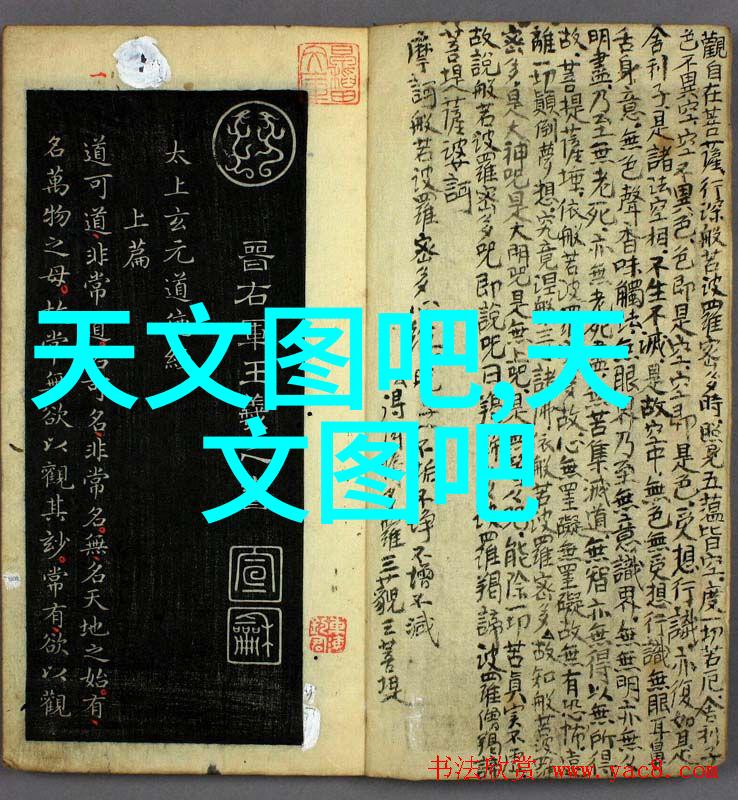 觀自在菩薩行深般若波羅密多時照見五蘊皆空度一切苦厄舍利子
色不異空空不異色色即是空空即是色受想行識亦復如是
舍利子是諸法空相不生不滅是故空中無色無受想行識無眼耳鼻
舌身意無色聲香味觸法無眼界乃至無意識界無無明亦無無
明盡乃至無老死亦無老死盡無苦集滅道無智亦無得以無所得
故菩提薩埵依般若波羅
故心無罣礙無罣礙故無有恐怖遠
離一切顛倒夢想究竟涅槃三
諸佛依般若波羅密多故知般若波羅
密多是大神咒是大明咒是無上咒是
能除一切苦真實不虛
故說般若波羅密多咒即說咒曰揭諦
波羅揭諦波羅僧揭諦
菩提薩婆訶
摩訶般若波羅密多心
不垢不淨不增不減
得阿
多羅三藐三菩提
晉右軍王羲
宣
龢
太上玄元道德經
上篇
道可道非常道名可名非常名無名天地之始有
名萬物之母故常無欲以觀其妙常有欲以觀
天文图吧,天
文图吧
书法欣赏 www.yac8.com